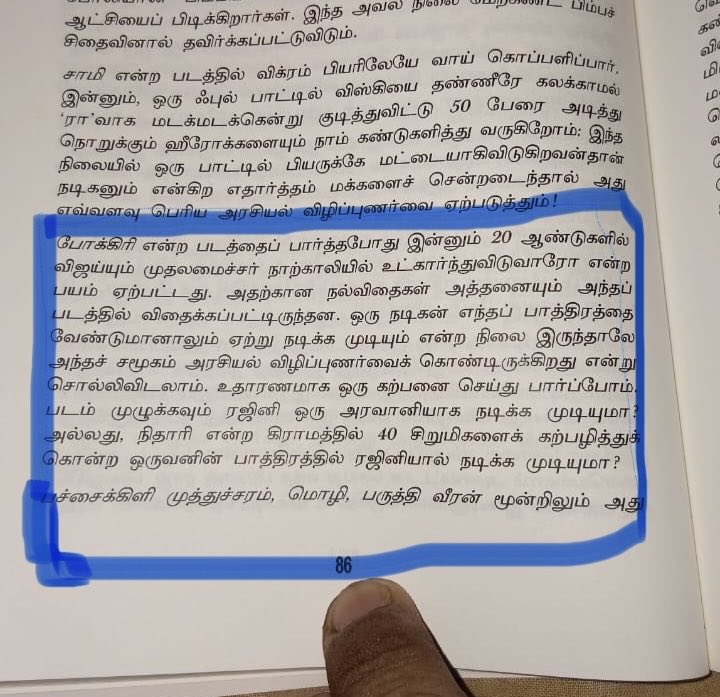 ஆட்சியைப் பிடிக்கிறார்கள். இந்த அவல நிலை மேற்கண்ட பிம்பச்
சிதைவினால் தவிர்க்கப்பட்டுவிடும்.
சாமி என்ற படத்தில் விக்ரம் பியரிலேயே வாய் கொப்பளிப்பார்.
இன்னும், ஒரு ஃபுல் பாட்டில் விஸ்கியை தண்ணீரே கலக்காமல்
'ரா'வாக மடக்மடக்கென்று குடித்துவிட்டு 50 பேரை அடித்து
நொறுக்கும் ஹீரோக்களையும் நாம் கண்டுகளித்து வருகிறோம்; இந்த
நிலையில் ஒரு பாட்டில் பியருக்கே மட்டையாகிவிடுகிறவன்தான்
நடிகனும் என்கிற எதார்த்தம் மக்களைச் சென்றடைந்தால் அது
எவ்வளவு பெரிய அரசியல் விழிப்புணர்வை ஏற்படுத்தும்!
போக்கிரி என்ற படத்தைப் பார்த்தபோது இன்னும் 20 ஆண்டுகளில்
விஜய்யும் முதலமைச்சர் நாற்காலியில் உட்கார்ந்துவிடுவாரோ என்ற
பயம் ஏற்பட்டது. அதற்கான நல்விதைகள் அத்தனையும் அந்தப்
படத்தில் விதைக்கப்பட்டிருந்தன. ஒரு நடிகன் எந்தப் பாத்திரத்தை
வேண்டுமானாலும் ஏற்று நடிக்க முடியும் என்ற நிலை இருந்தாலே
அந்தச் சமூகம் அரசியல் விழிப்புணர்வைக் கொண்டிருக்கிறது என்று
சொல்லிவிடலாம். உதாரணமாக ஒரு கற்பனை செய்து பார்ப்போம்.
படம் முழுக்கவும் ரஜினி ஒரு அரவானியாக நடிக்க முடியுமா?
அல்லது, நிதாரி என்ற கிராமத்தில் 40 சிறுமிகளைக் கற்பழித்துக்
கொன்ற ஒருவனின் பாத்திரத்தில் ரஜினியால் நடிக்க முடியுமா?
பச்சைக்கிளி முத்துச்சரம், மொழி, பருத்தி வீரன் மூன்றிலும் அது
86